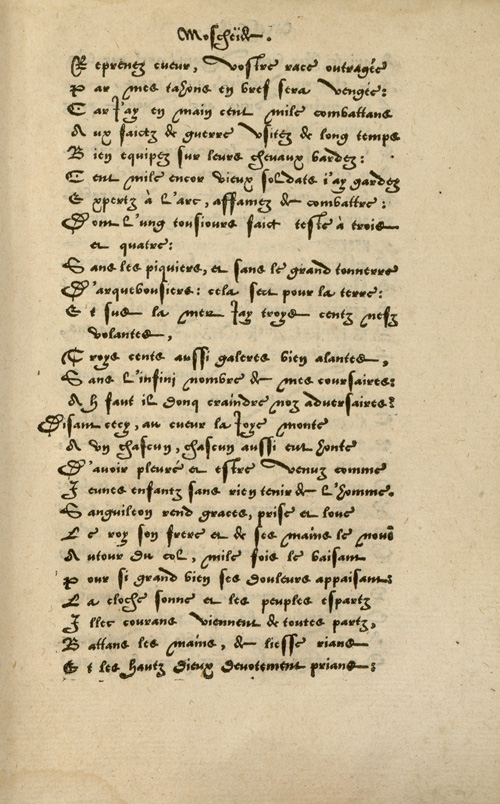 Moscheïde.
Reprenez cueur, vostre race outragée
Par mes taHons en bref sera vengée:
Car J'ay en main cent mile combattans
Aux faictz de guerre vsitez de long temps
Bien equipez sur leurs chevaux bardez:
Cent mile encor vieux soldats i'ay gardez
Expertz à l'arc, affamez de combattre:
Dont l'ung tousiours faict teste à trois
et quatre:
Sans les piquiers, et sans le grand tonnerre
D'arquebousiers: cela sert pour la terre:
Et sus la mer Jay troys centz nefz
volantes,
Troys cents aussi galeres bien alantes,
Sans l'infini nombre de mes coursaires:
Ah faut il donq craindre noz adversaires?
Disant cecy, au cueur la Joye monte
A vn chascun, chascun aussi eut honte
D'avoir pleuré et estre venuz comme
Jeunes enfantz sans rien tenir de l'homme.
Sanguileon rend graces, prise et loue
Le roy son frere et de ses mains le nouë
Autour du col, mile fois le baisant
Pour si grand bien ses douleurs appaisant:
La cloche sonne et les peuples espartz
Illec courans viennent de toutes partz,
Battans les mains, de liesse rians
Et les hautz Dieux devotement prians: